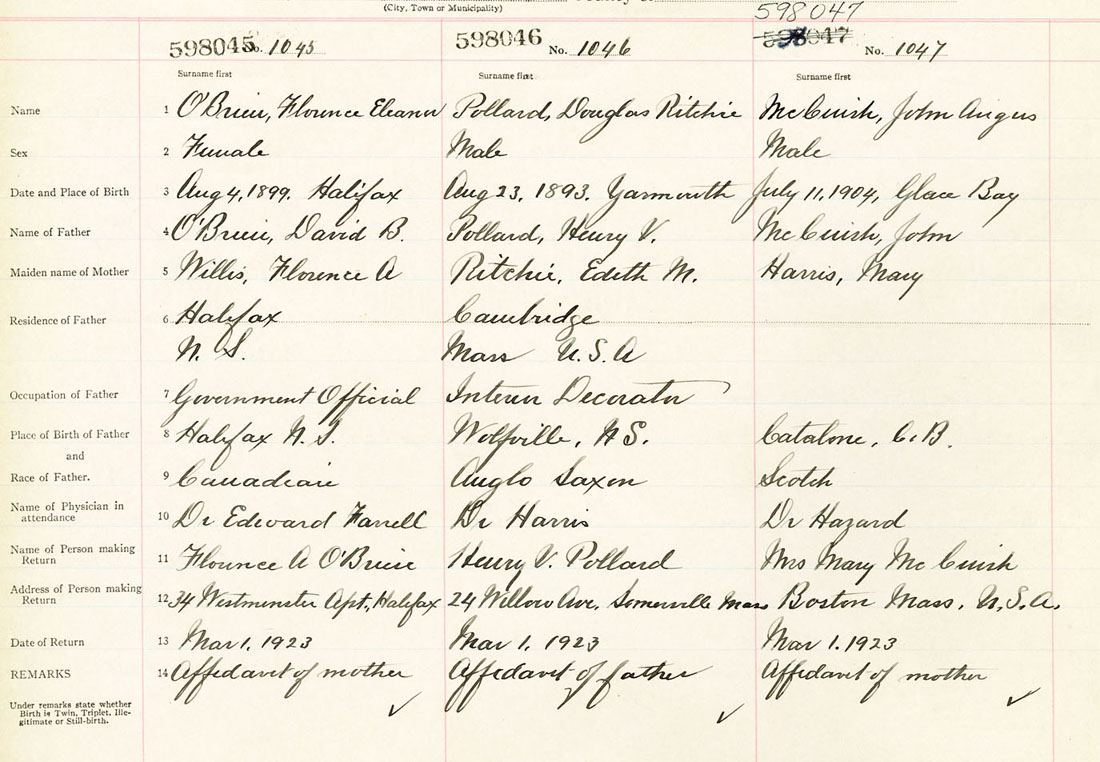 (City, Town or Municipality)
598047
598045 No. 1045 598046 No. 1046 598047 No. 1047
Surname first Surname first Surname first
Name 1 O'Brien, Florence Eleanor Pollard, Douglas Ritchie McCuish, John Angus
Sex 2 Female Male Male
Date and Place of Birth 3 Aug 4, 1899. Halifax Aug 23, 1893. Yarmouth July 11, 1904, Glace Bay
Name of Father 4 O'Brien, David B. Pollard, Henry V. McCuish, John
Maiden name of Mother 5 Willis, Florence A Ritchie, Edith M. Harris, Mary
Residence of Father 6 Halifax Cambridge
N. S. Mass U.S.A
Occupation of Father 7 Government Official Interior Decorator
Place of Birth of Father 8 Halifax N.S. Wolfville, N.S. Catalone, C.B.
and
Race of Father. 9 Canadian Anglo Saxon Scotch
Name of Physician in
attendance 10 Dr Edward Farrell Dr Harris Dr Hazard
Name of Person making
Return 11 Florence A O'Brien Henry V. Pollard Mrs Mary McCuish
Address of Person making
Return 12 34 Westminster Apt., Halifax 24 Willow Ave. Somerville Mass Boston Mass. U.S.A.
Date of Return 13 Mar 1, 1923 Mar 1, 1923 Mar 1. 1923
REMARKS 14 Affidavit of mother Affidavit of father Affidavit of mother
Under remarks state whether
Birth is Twin, Triplet, Ille-
gitimate or Still-birth.